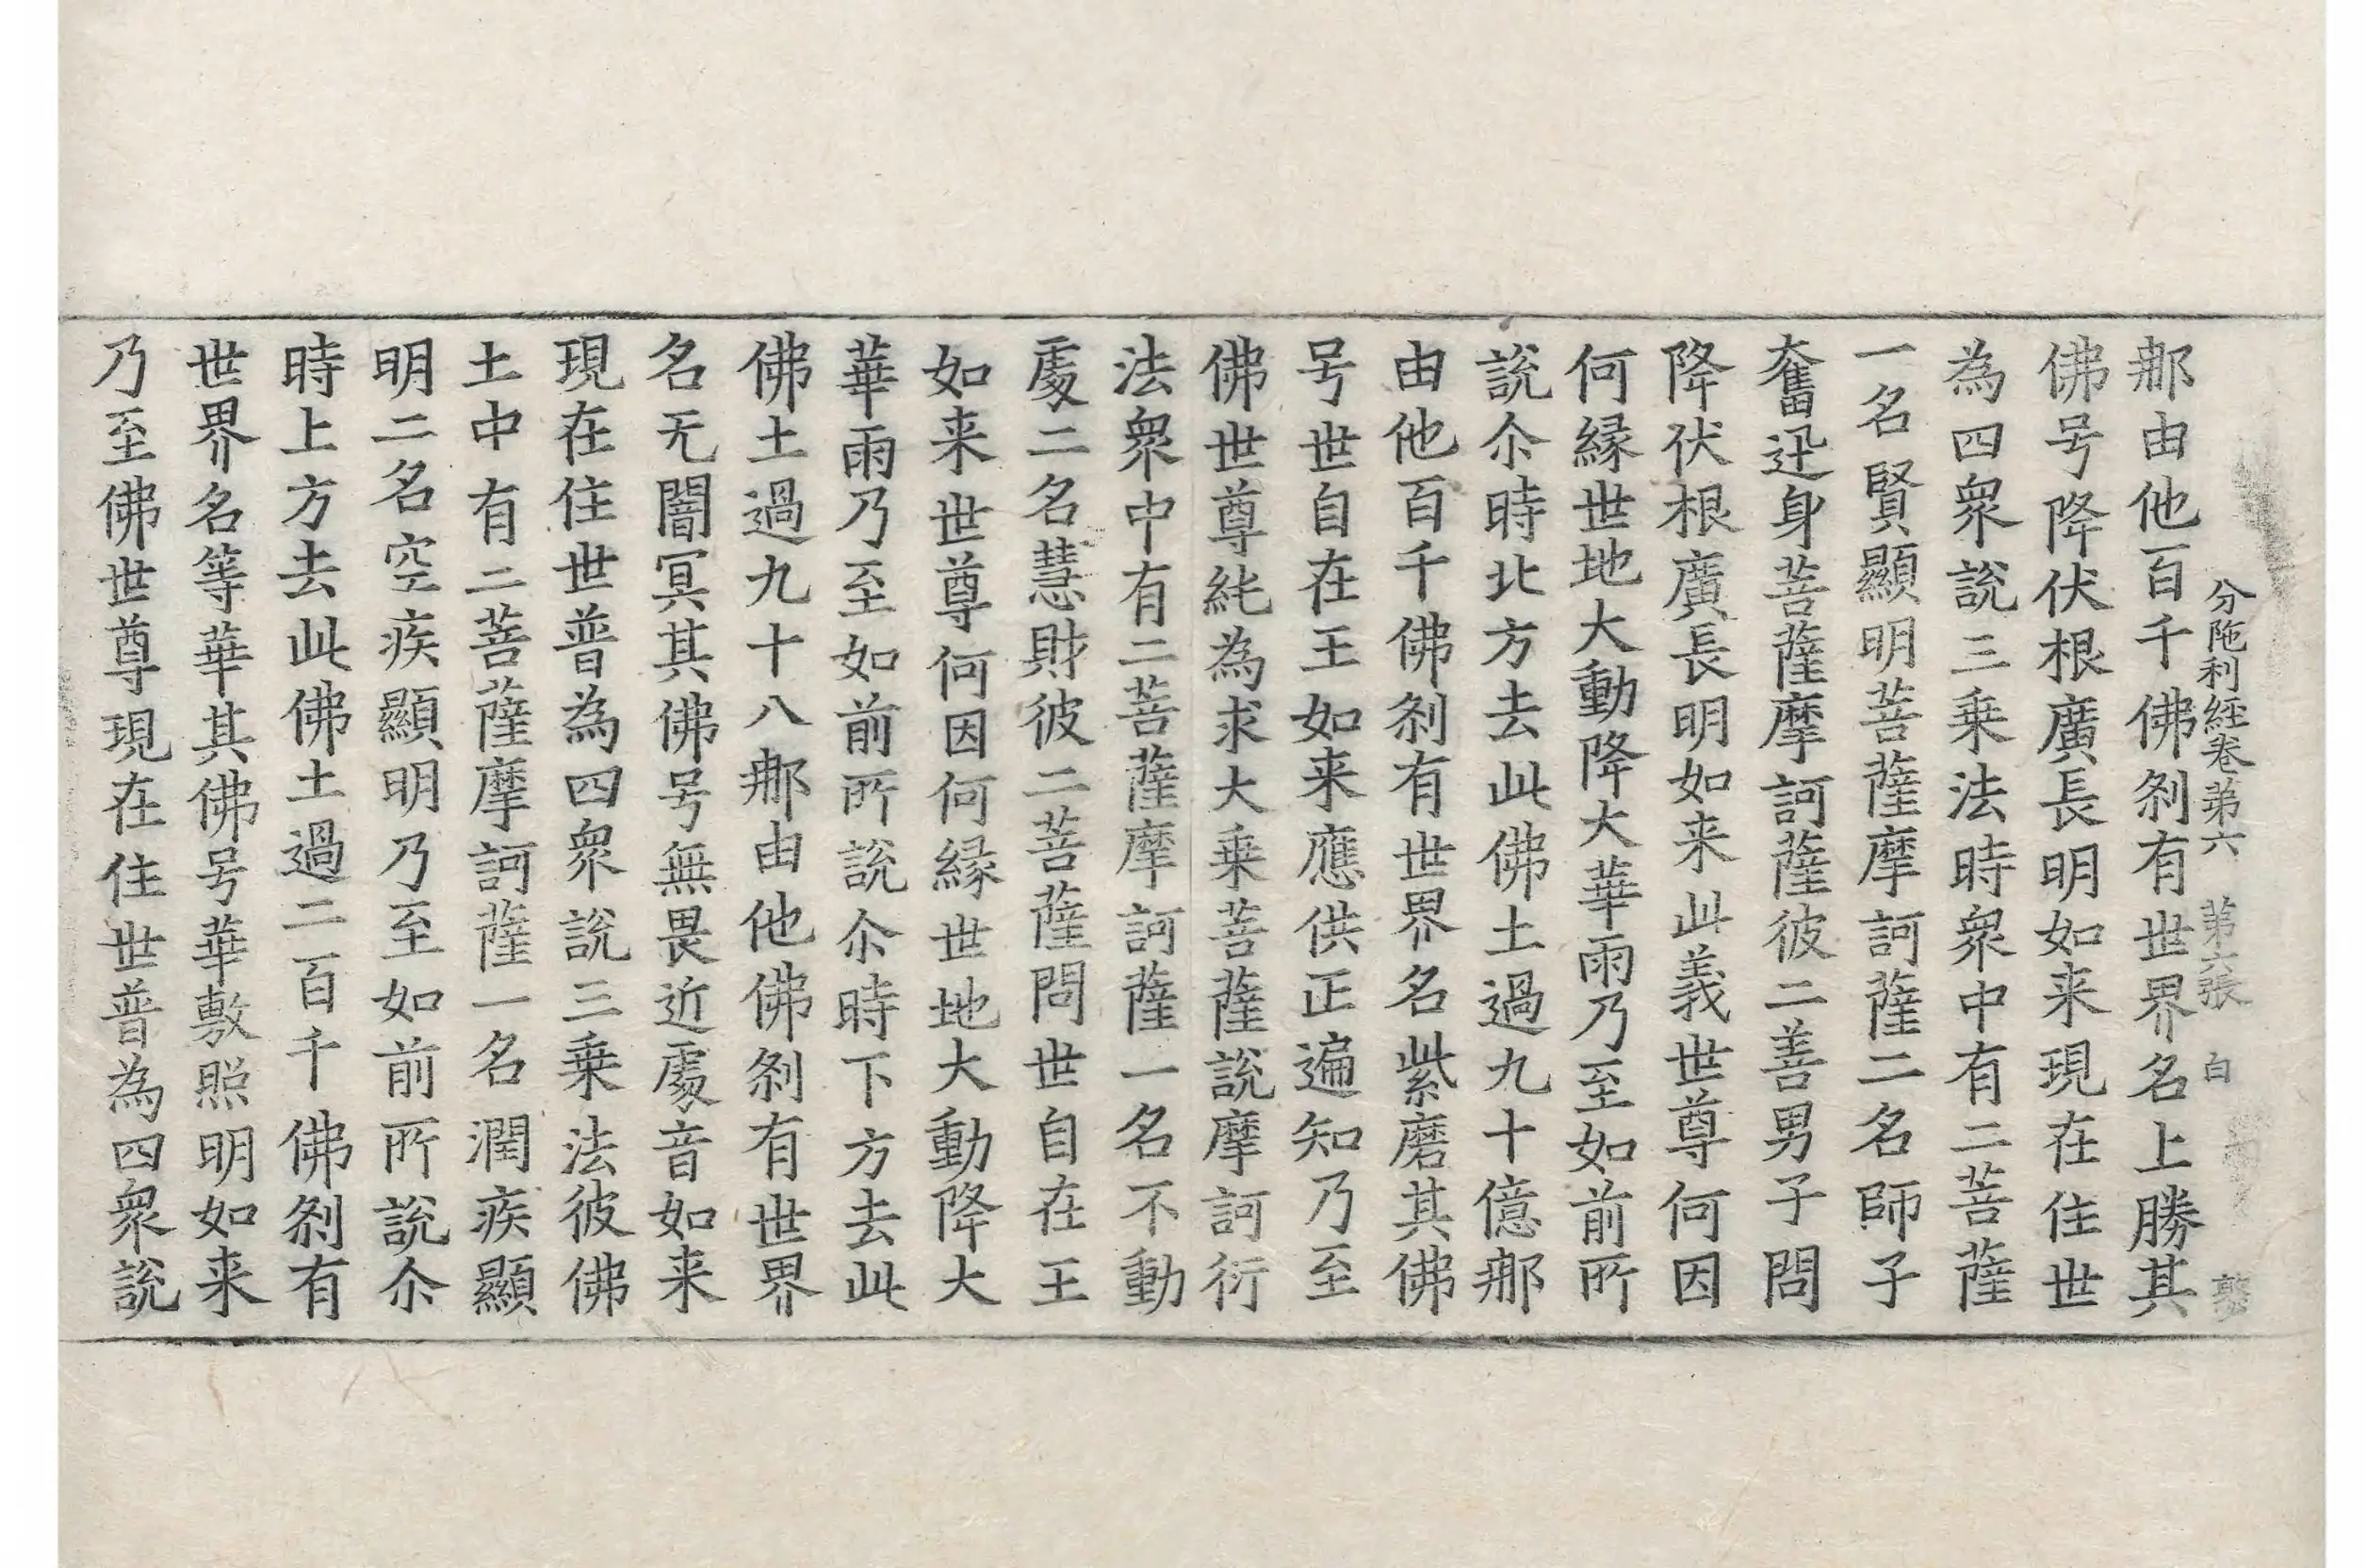 分陁利経卷第六　第六張　白
那由他百千佛刹有世界名上勝其
佛号降伏根廣長明如来現在住世
為四衆說三乗法時衆中有二菩薩
一名賢顯明菩薩摩訶薩二名師子
奮迅身菩薩摩訶薩彼二善男子問
降伏根廣長明如来此義世尊何因
何縁世地大動降大華雨乃至如前所
說尒時北方去此佛土過九十億那
由他百千佛刹有世界名紫磨其佛
号世自在王如来應供正遍知乃至
佛世尊純為求大乗菩薩說摩訶衍
法衆中有二菩薩摩訶薩一名不動
處二名慧財彼二菩薩問世自在王
如来世尊何因何縁世地大動降大
華雨乃至如前所說尒時下方去此
佛土過九十八那由他佛刹有世界
名无闇冥其佛号無畏近處音如来
現在住世普為四衆說三乗法彼佛
土中有二菩薩摩訶薩一名潤疾顯
明二名空疾顯明乃至如前所說尒
時上方去此佛土過二百千佛刹有
世界名等華其佛号華敷照明如来
乃至佛世尊現在住世普為四衆說